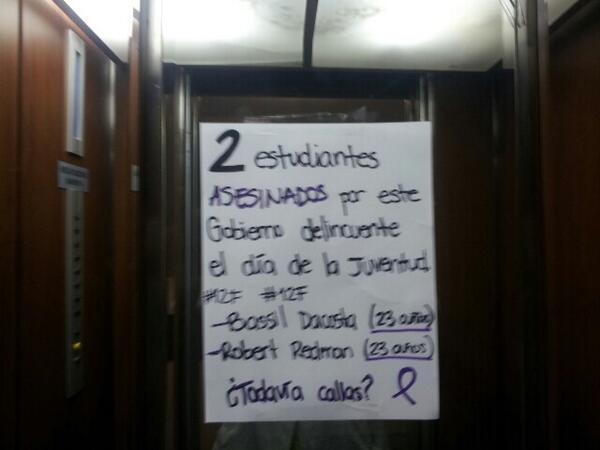 2 estudiantes
ASESINADOS por este
Gobierno delincuente
el día de la Juventud.
#12F #12F
-Bassil Dacosta (23 años)
-Robert Redman (23 años)
¿Todavía callas?